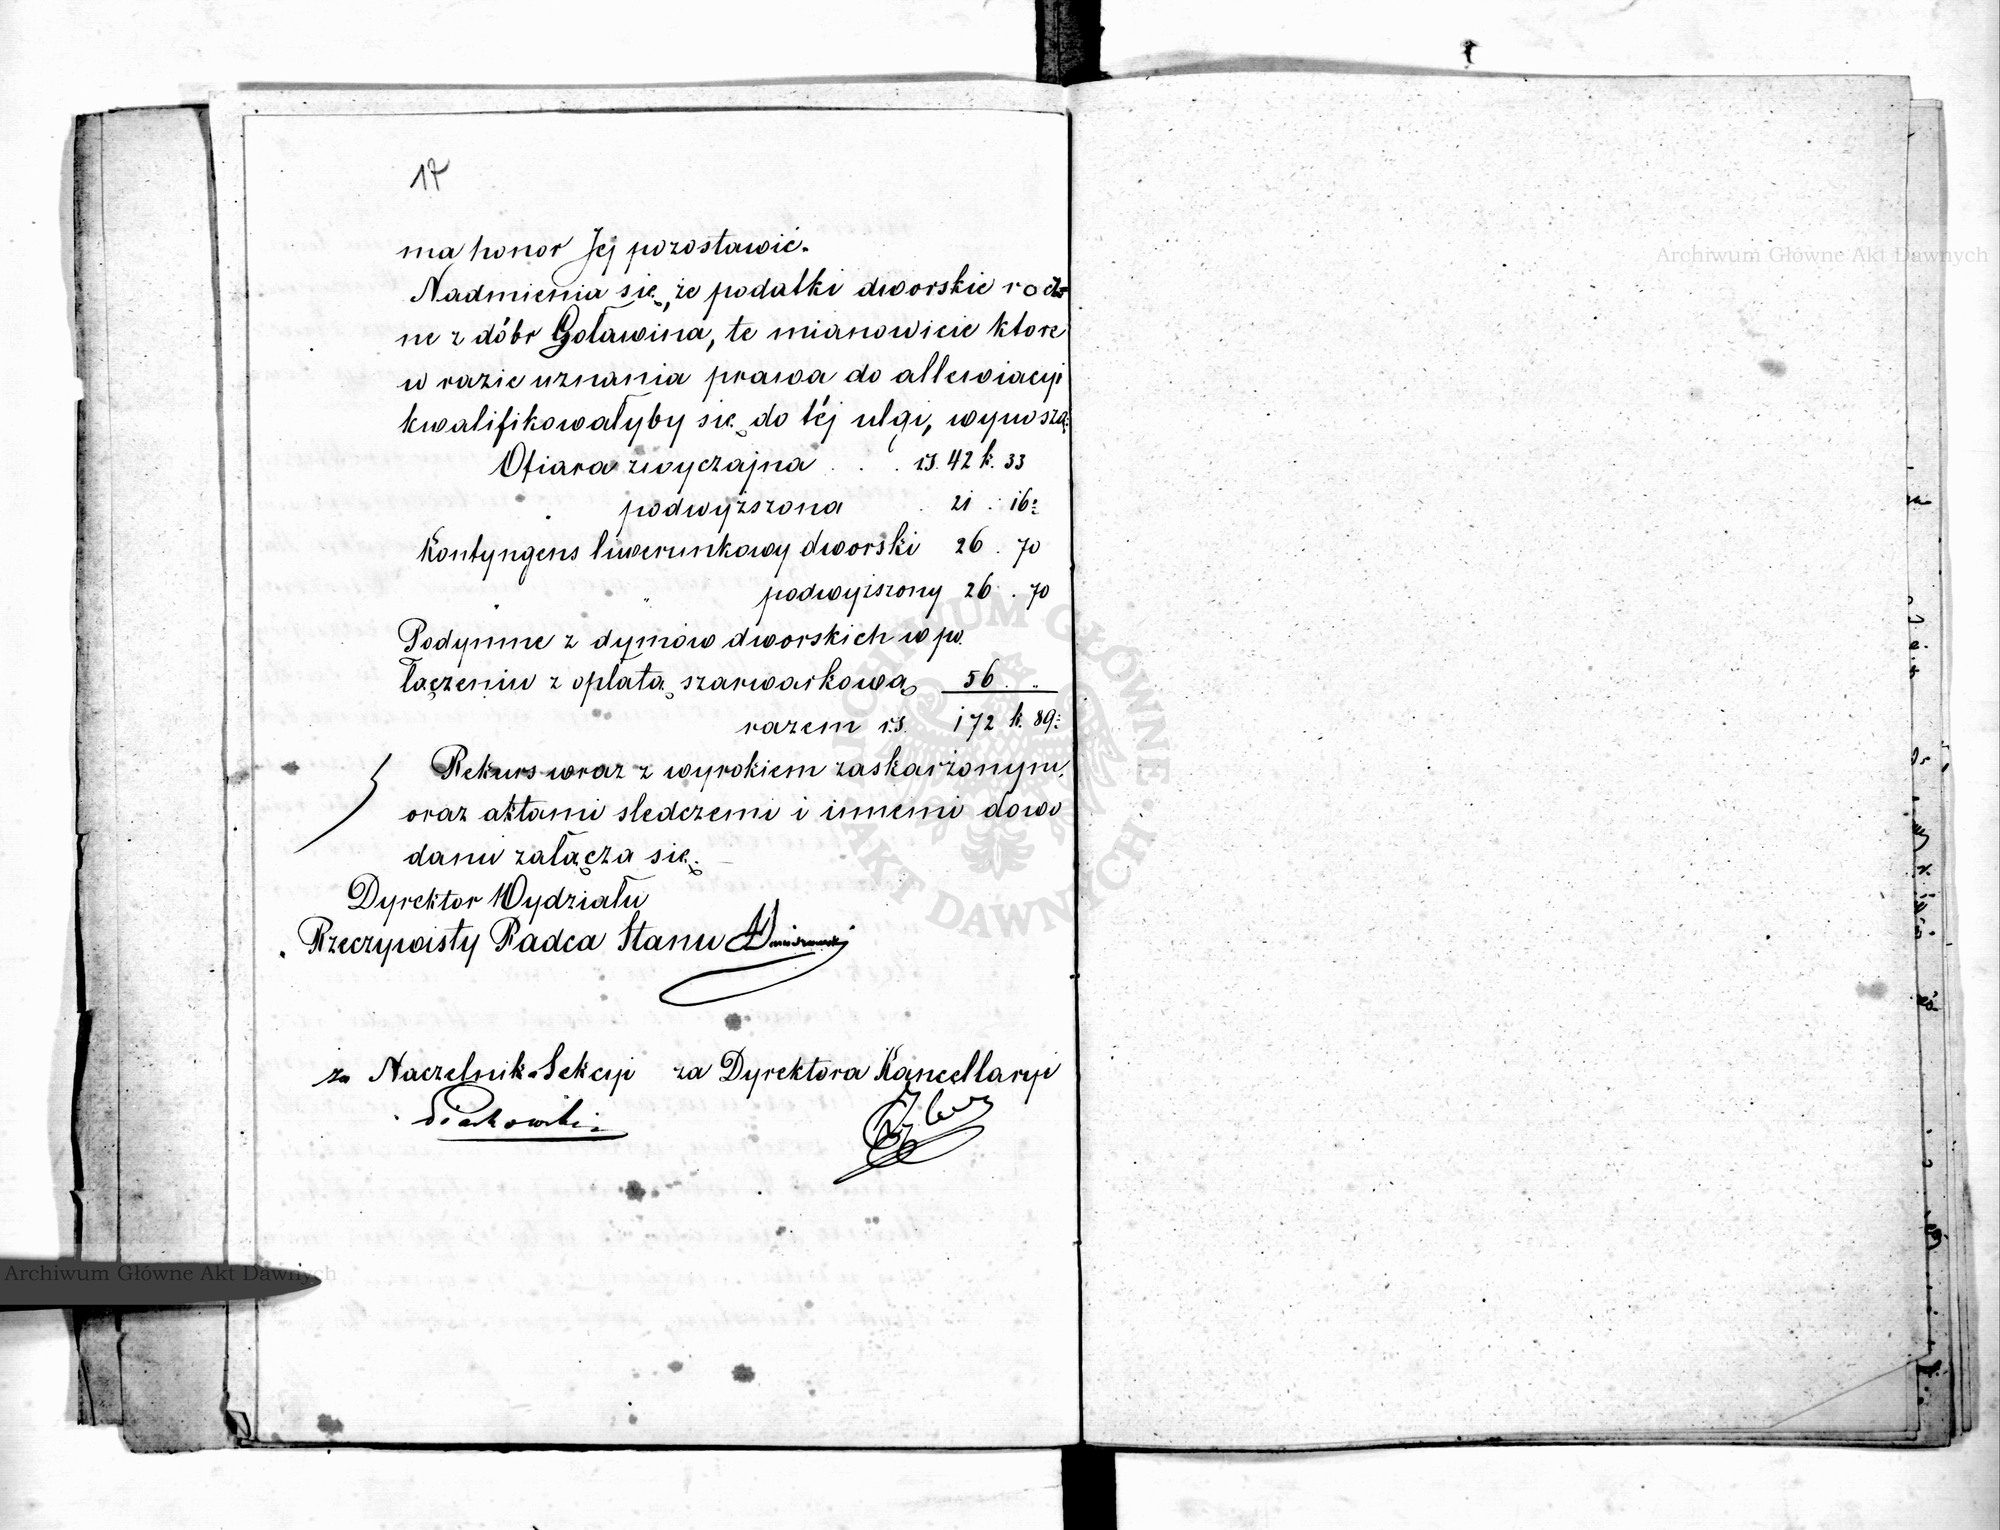 17
ma honor Jej pozostawić.
Nadmienia się, że podatki dworskie rocz
ne z dóbr Goławina, te mianowicie ktore
w razie uznania prawa do allewiacyi
kwalifikowałyby się do téj ulgi, wynoszą:
Ofiara zwyczajna . . . rs. 42 k. 33
podwyższona . 21 . 16:
Kontyngens liwerunkowy dworski 26 . 70
" " podwyższony 26 . 70
Podymne z dymów dworskich w po
łączeniu z opłatą szarwarkową 56 . "
razem rs. 172 k. 89:
Rekurs wraz z wyrokiem zaskarżonym,
oraz aktami sledczemi i innemi dowo
dami załącza się.
Dyrektor Wydziału
Rzeczywisty Radca Stanu
za Naczelnik Sekcyi za Dyrektora Kancellaryi
Piaskowski
Archiwum Główne Akt Dawnych
Archiwum Główne Akt Dawnych
ARCHIWUM GŁÓWNE AKT DAWNYCH